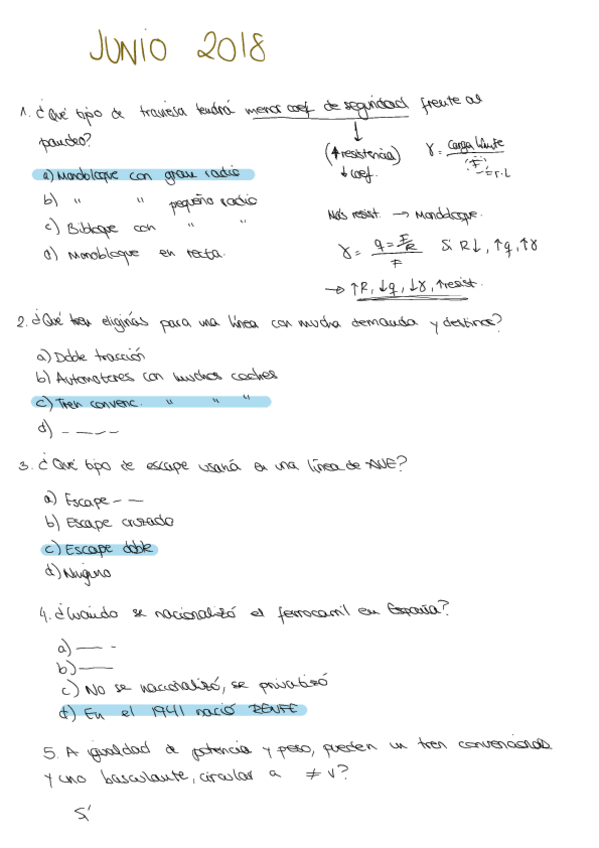 JUNIO 2018
1. ¿Qué tipo de traviesa tendrá menor coef de seguridad frente al
pandeo?
(↑resistencia)
↓coef.
γ = carga límite / F
= r·L
a) Monobloque con gran radio
b) " " pequeño radio
c) Bibloque con " "
d) Monobloque en recta.
Más resist. → Monobloque.
γ = q = F/R / F Si R↓, ↑q, ↑γ
→ ↑R, ↓q, ↓γ, ↑resist.
2. ¿Qué eligirías para una línea con mucha demanda y destinos?
a) Doble tracción
b) Automotores con muchos coches
c) Tren convenc. " " "
d) -----
3. ¿Qué tipo de escape usaría en una línea de AVE?
a) Escape --
b) Escape cruzado
c) Escape doble
d) Ninguno
4. ¿Cuándo se nacionalizó el ferrocarril en España?
a) ---
b) ---
c) No se nacionalizó, se privatizó
d) En el 1941 nació RENFE
5. A igualdad de potencia y peso, pueden un tren convencional
y uno basculante, circular a ≠ v?
Sí